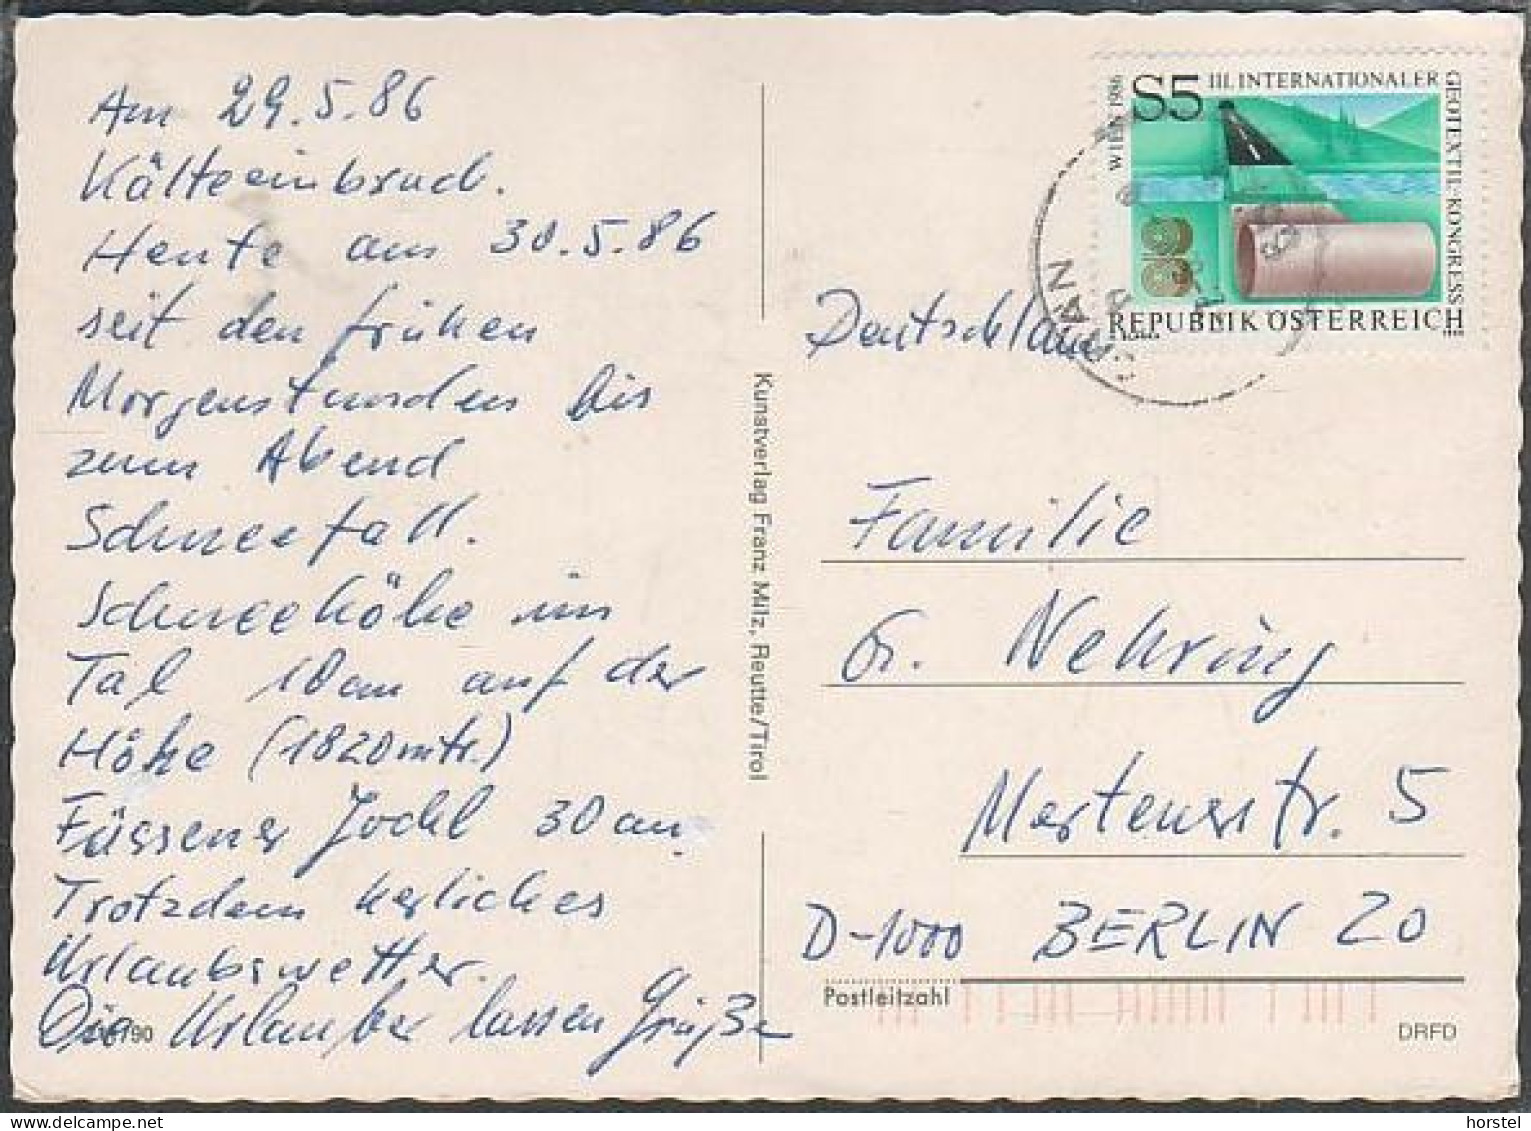 Am 29.5.86
Kälteeinbruch.
Heute am 30.5.86
seit den frühen
Morgenstunden bis
zum Abend
Schneefall.
Schneehöhe im
Tal 10cm auf der
Höhe (1820mtr.)
Füssener Jochl 30cm.
Trotzdem herliches
Urlaubswetter.
Die Urlauber lassen Grüße
790
Kunstverlag Franz Milz, Reutte/Tirol
WIEN 1986
S5 III. INTERNATIONALER
GEOTEXTIL-KONGRESS
REPUBLIK ÖSTERREICH
Deutschland
Familie
G. Nehring
Mertensstr. 5
D-1000 BERLIN 20
Postleitzahl
DRFD
horstel